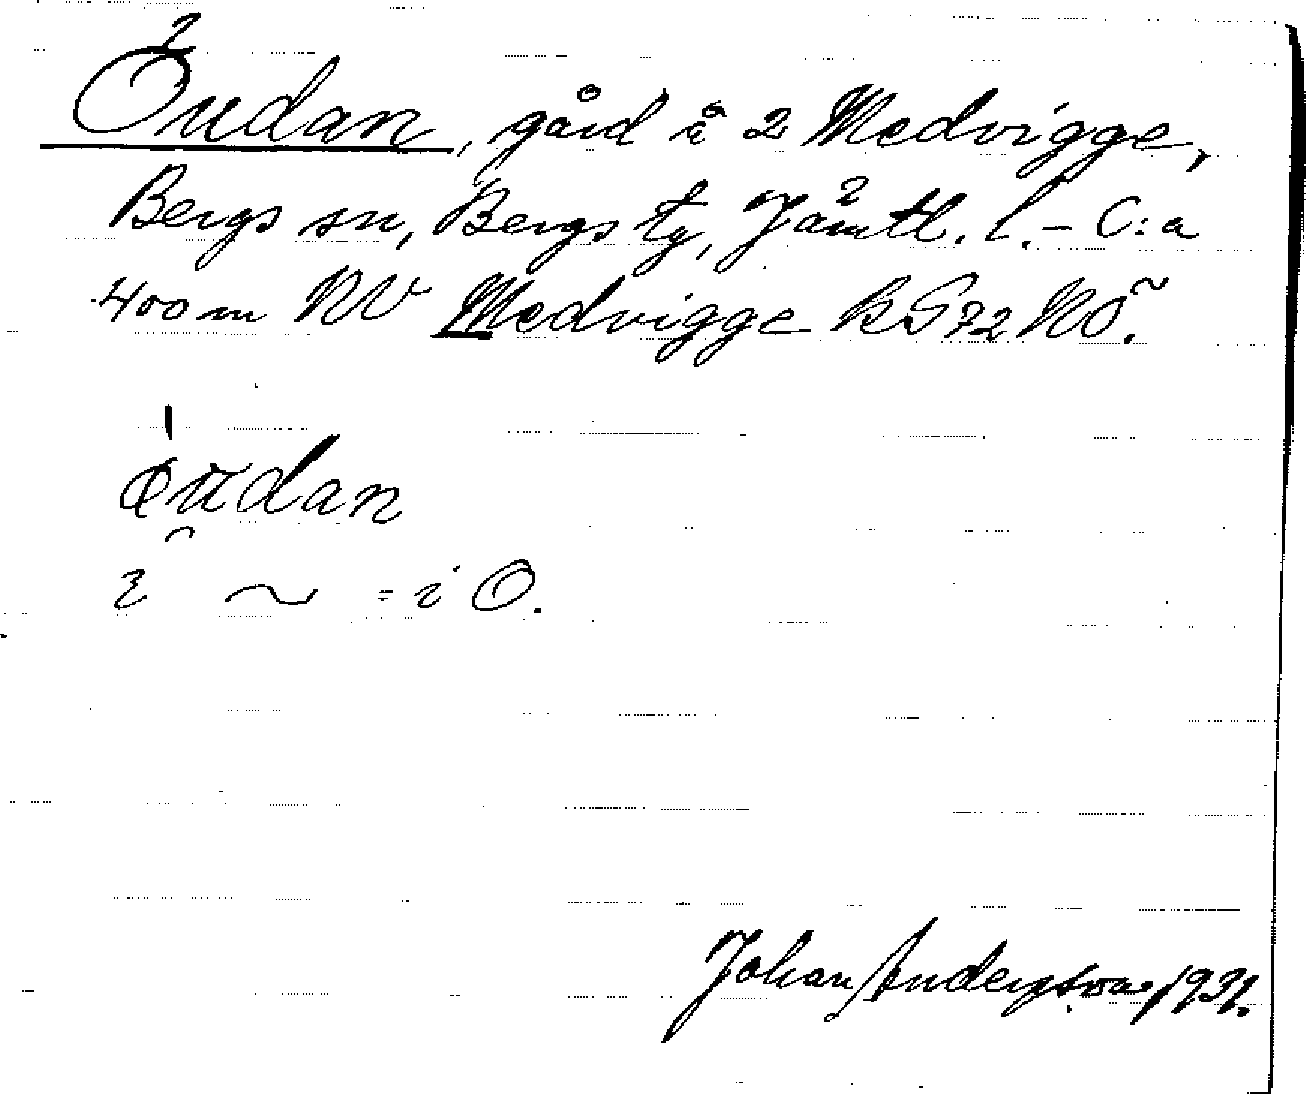 Öudan, gård å 2 Medvigge,
Bergs sn, Bergs tg, Jämtl. l. - C:a
400 m NV Medvigge kS72NÖ.
i ~ = i Ö.
Johan Anderson 1931.